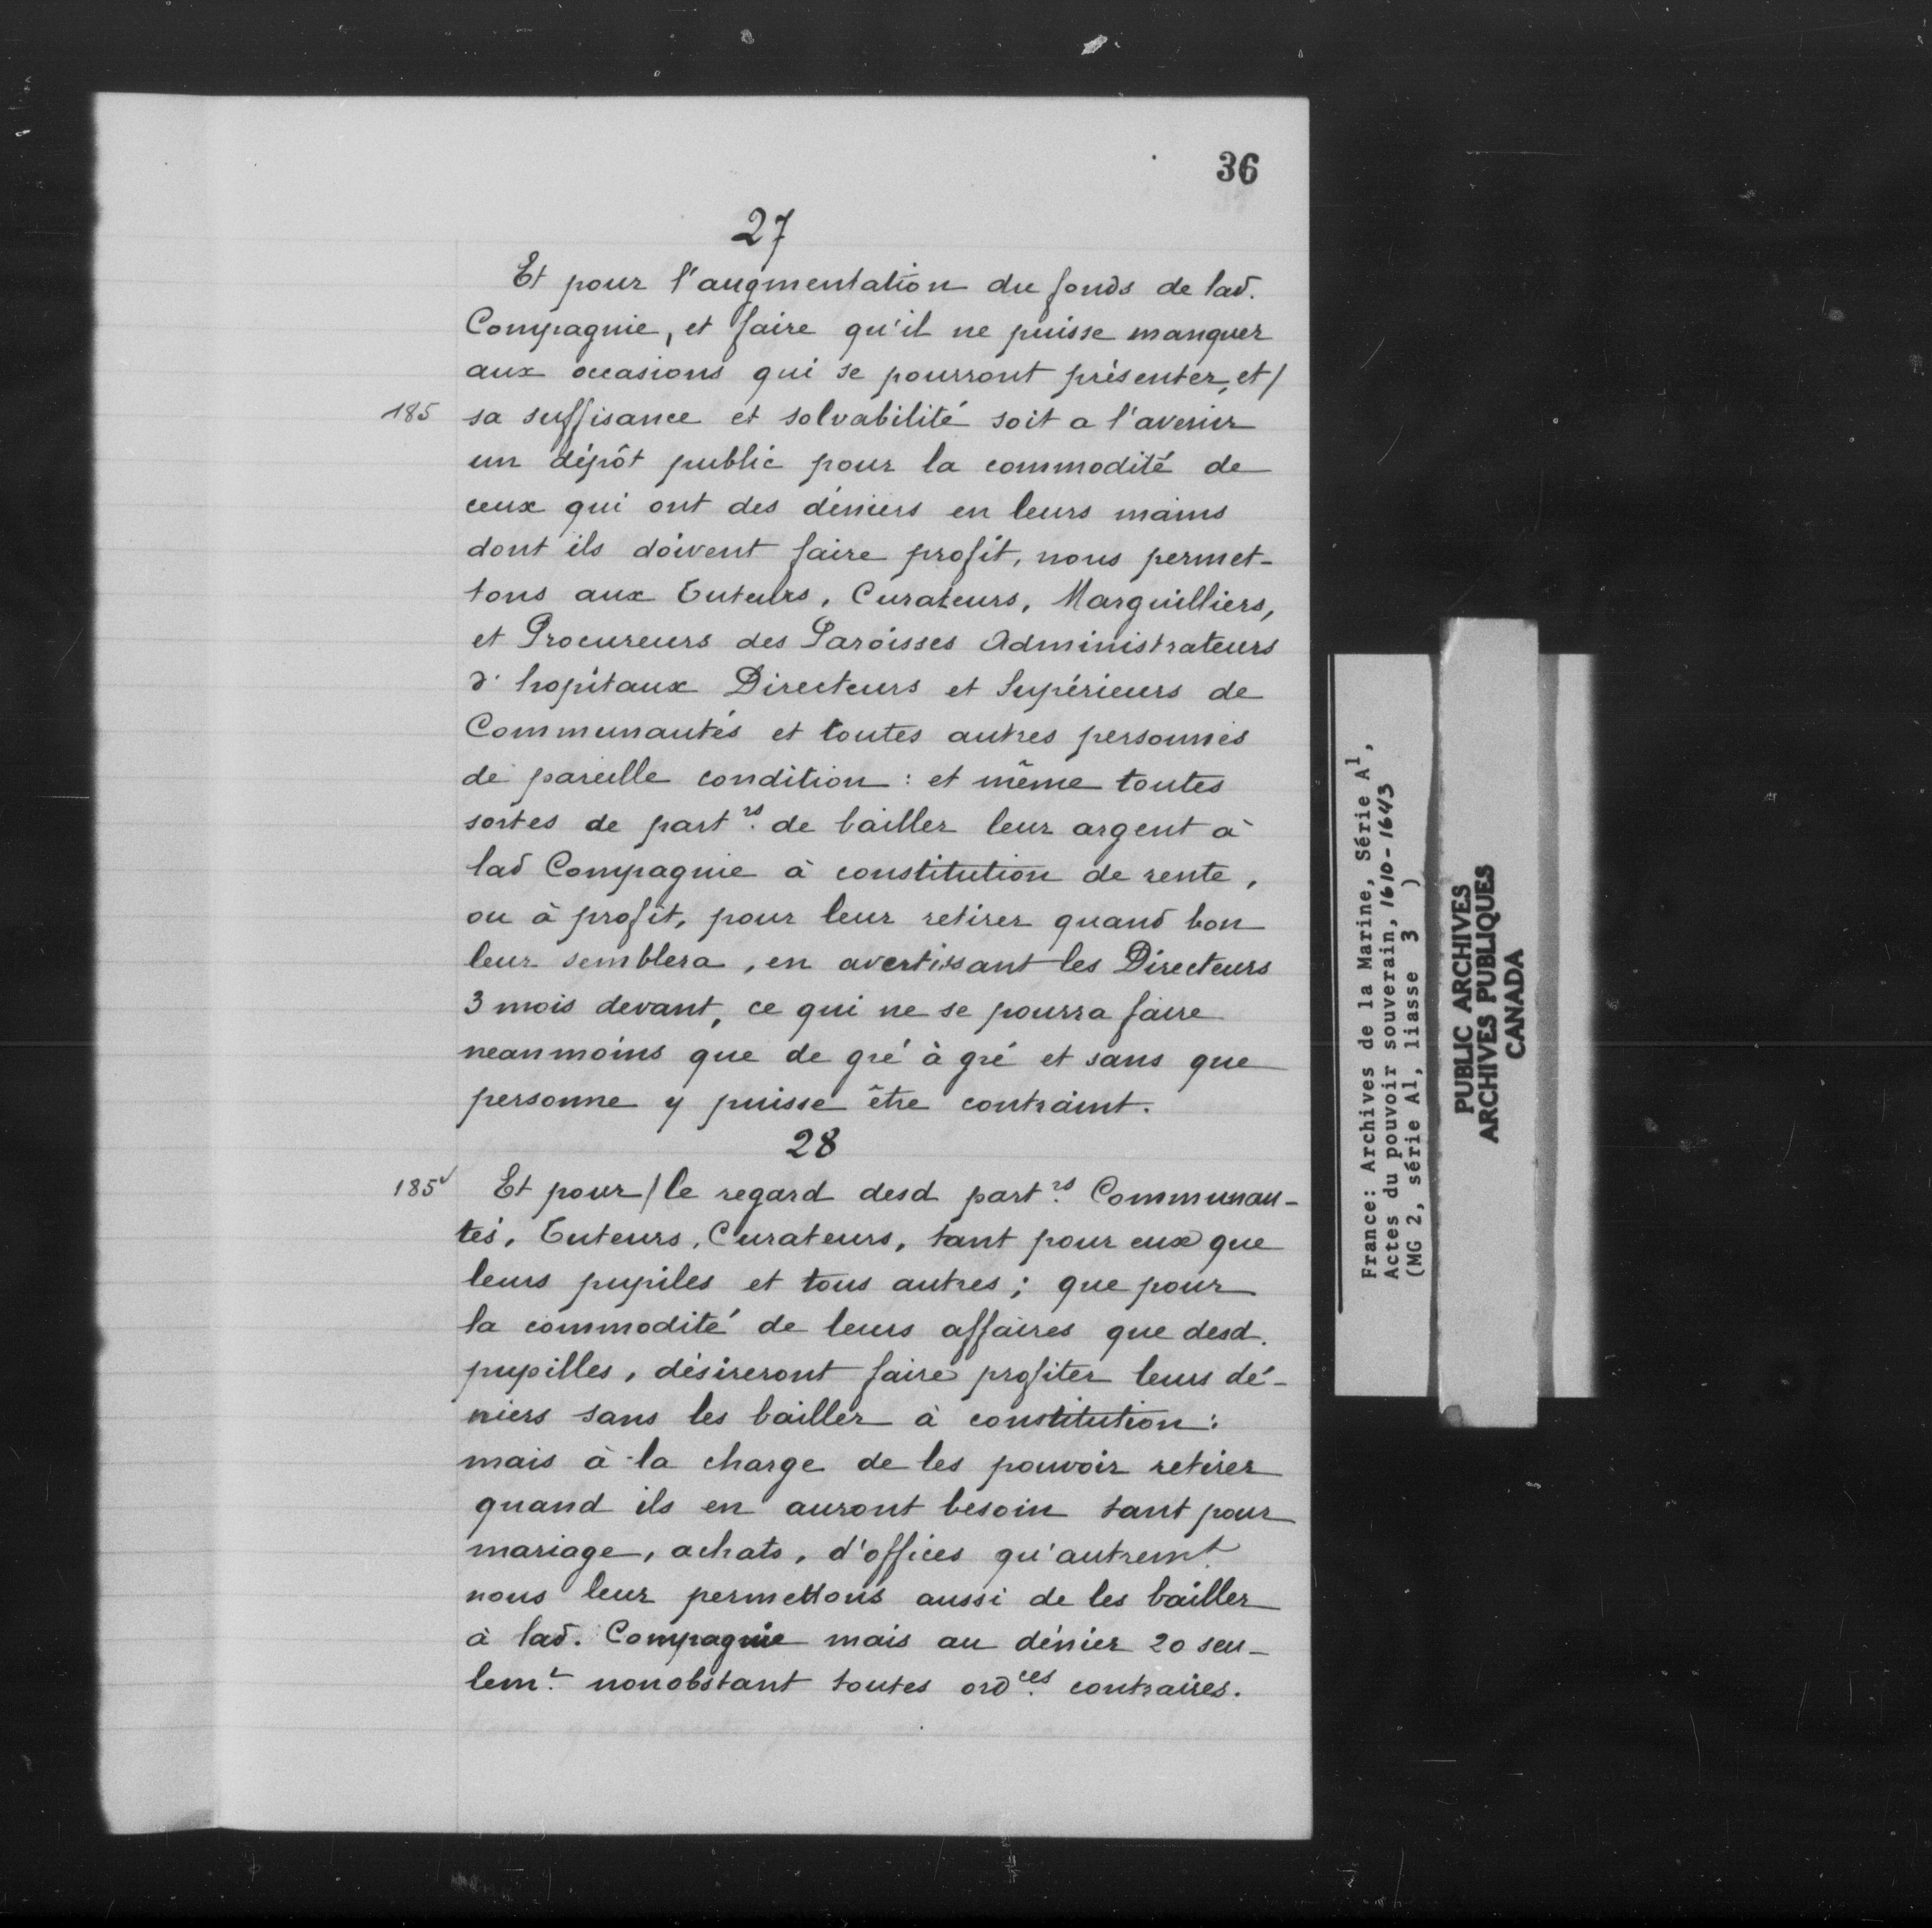 36
27
Et pour l'augmentation du fonds de lad.
Compagnie, et faire qu'il ne puisse manquer
aux occasions qui se pourront présenter, et/
185 sa suffisance et solvabilité soit a l'avenir
un dépôt public pour la commodité de
ceux qui ont des déniers en leurs mains
dont ils doivent faire profit, nous permet-
tons aux Tuteurs, Curateurs, Marguilliers,
et Procureurs des Paroisses Administrateurs
d'hopitaux Directeurs et Supérieurs de
Communautés et toutes autres personnes
de pareille condition : et même toutes
sortes de part.rs de bailler leur argent à
lad Compagnie à constitution de rente,
ou à profit, pour leur retirer quand bon
leur semblera, en avertissant les Directeurs
3 mois devant, ce qui ne se pourra faire
neanmoins que de gré à gré et sans que
personne y puisse être contraint.
28
185v Et pour/le regard desd part.rs Communau-
tés, Tuteurs, Curateurs, tant pour eux que
leurs pupiles et tous autres ; que pour
la commodité de leurs affaires que desd.
pupilles, désireront faire profiter leurs dé-
niers sans les bailler à constitution :
mais à la charge de les pouvoir retirer
quand ils en auront besoin tant pour
mariage, achats, d'offices qu'autremt
nous leur permettons aussi de les bailler
à lad. Compagnie mais au dénier 20 seu-
lem.t nonobstant toutes ord.ces contraires.
France: Archives de la Marine, Série A1,
Actes du pouvoir souverain, 1610-1643
(MG 2, série A1, liasse 3 )
PUBLIC ARCHIVES
ARCHIVES PUBLIQUES
CANADA